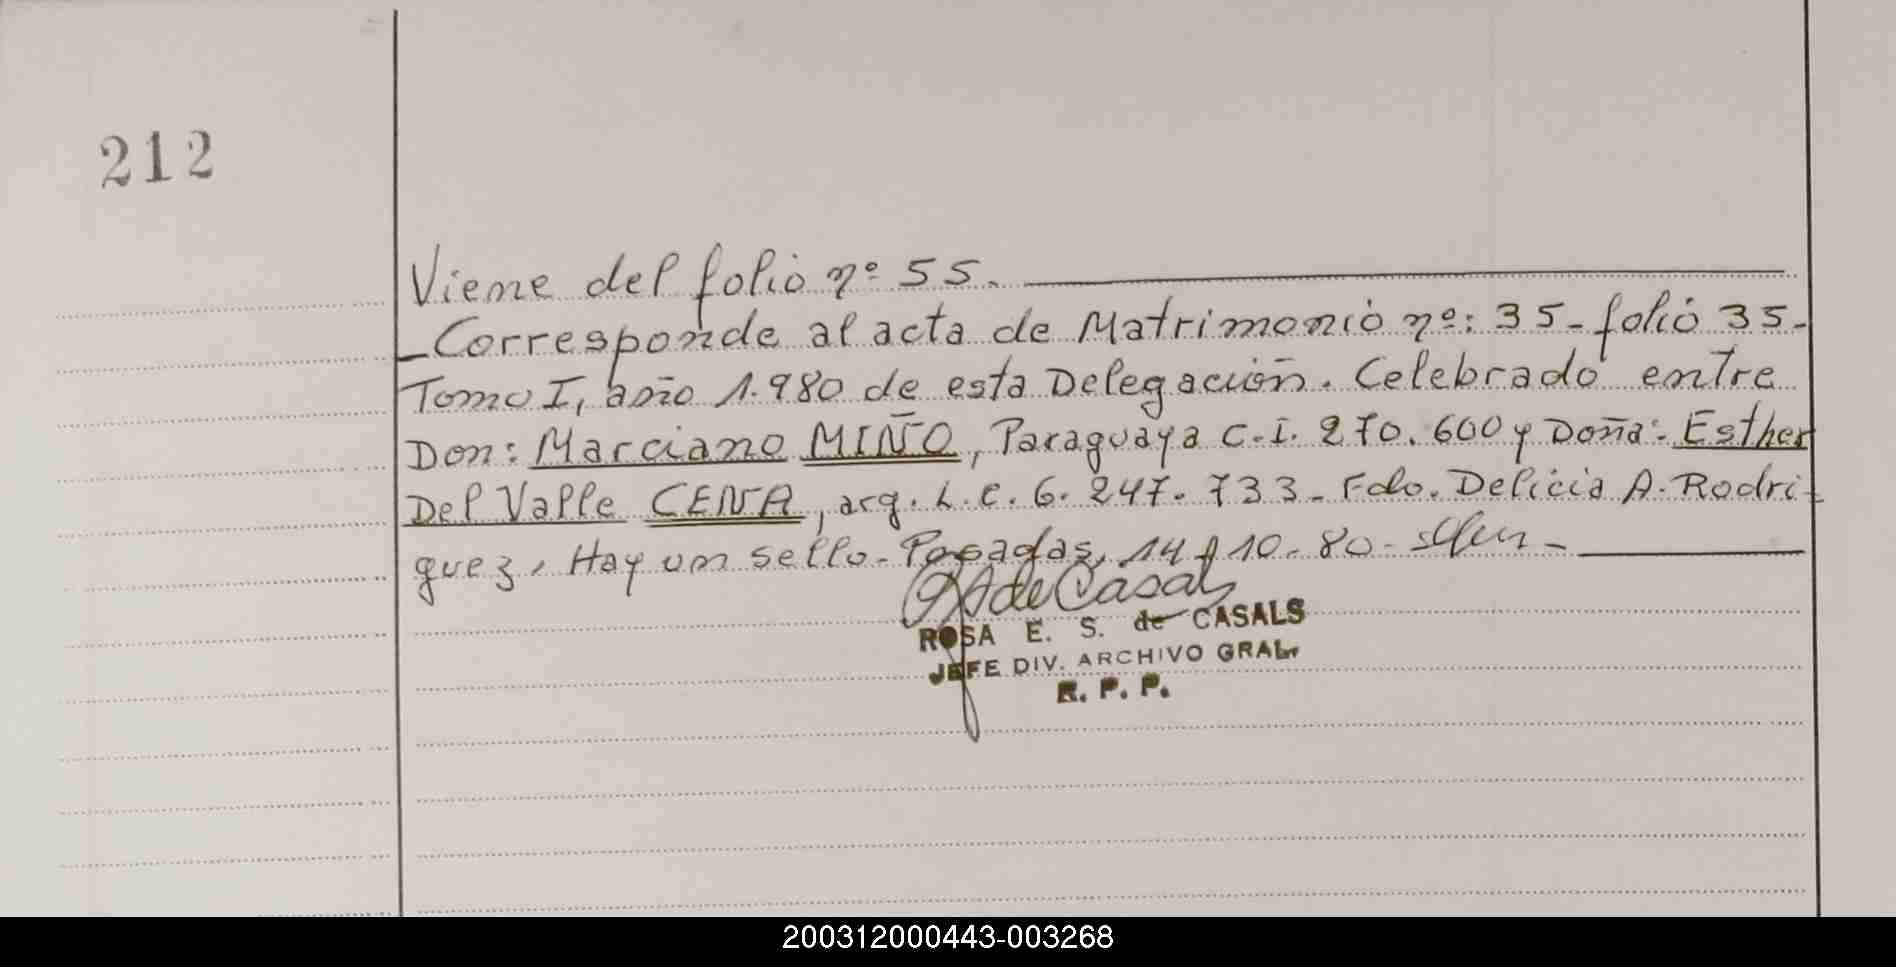 212
Viene del folio nº 55.
_Corresponde al acta de Matrimonio nº: 35_ folio 35-
Tomo I, año 1.980 de esta Delegación. Celebrado entre
Don: Marciano MIÑO, Paraguaya C.I. 270.600 y Doña: Esther
Del Valle CENA, arg. L.C. 6.247.733_ Fdo. Delicia A. Rodri-
guez, Hay un sello_ Posadas, 14-10-80-
de Casals
ROSA E. S. de CASALS
JEFE DIV. ARCHIVO GRAL.
R. P. P.
200312000443-003268